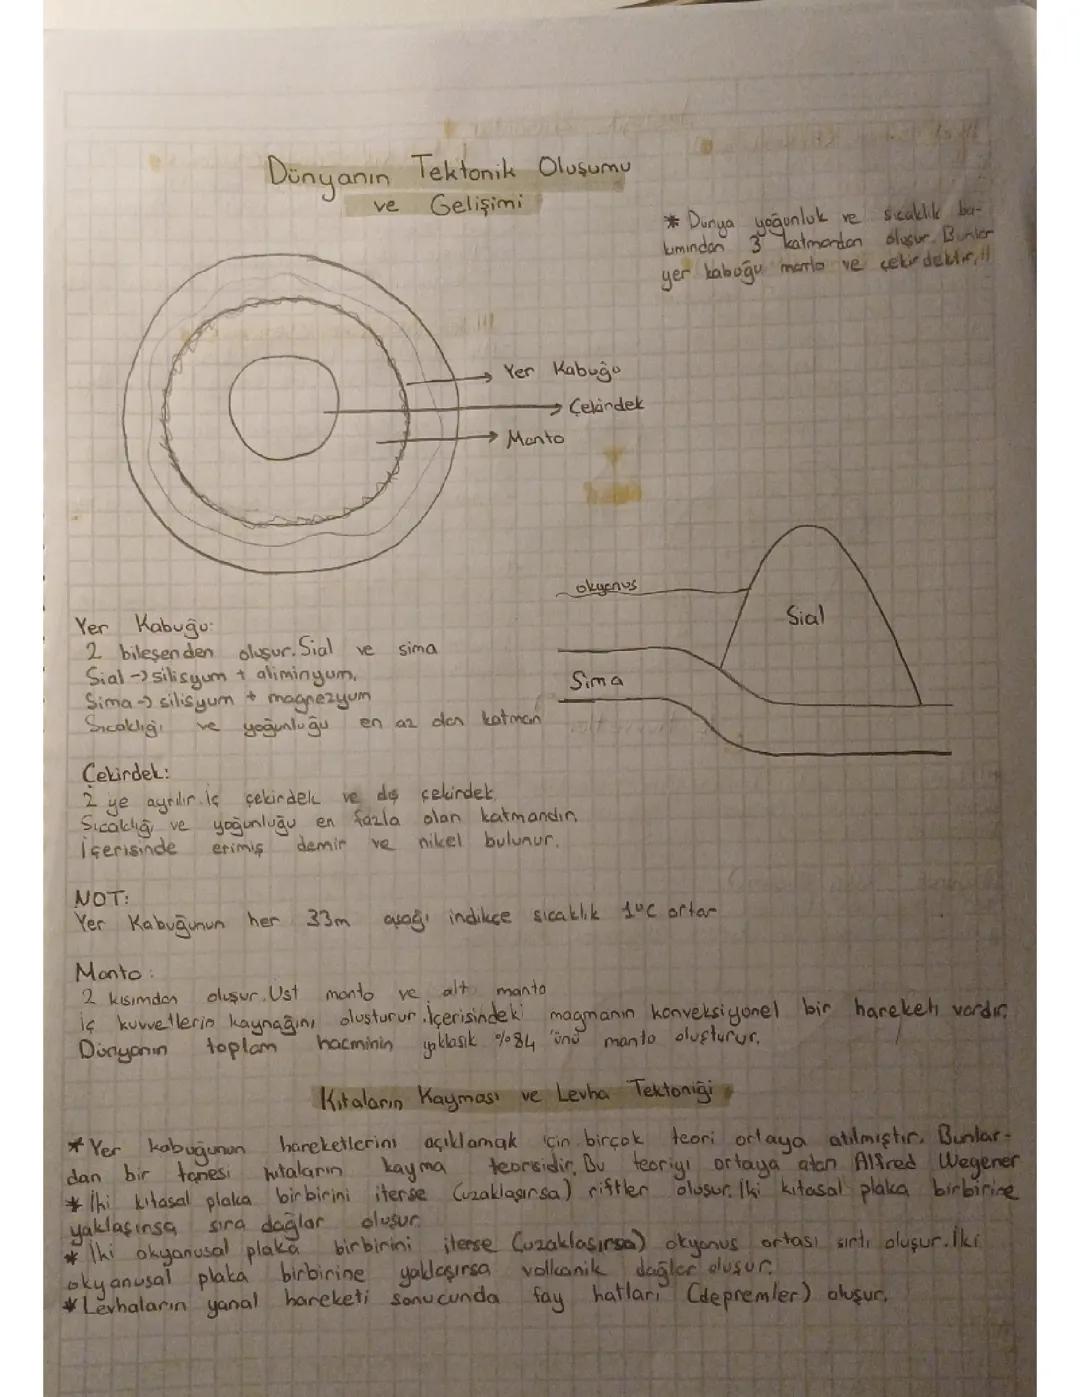 Dünyanın Tektonik Oluşumu
ve Gelişimi
* Dünya yoğunluk ve sıcaklık ba-
kımından 3 katmandan oluşur. Bunlar
yer kabuğu manto ve çekirdektir.!!
Yer Kabuğu
Çekirdek
Manto
okyanus
Sial
Sima
Yer Kabuğu:
2 bileşenden oluşur. Sial ve sima
Sial -> silisyum + aliminyum.
Sima -> silisyum + magnezyum
Sıcaklığı ve yoğunluğu en az olan katman
Çekirdek:
2 ye ayrılır. iç çekirdek ve dış çekirdek
Sıcaklığı ve yoğunluğu en fazla olan katmandır.
İçerisinde erimiş demir ve nikel bulunur.
NOT:
Yer Kabuğunun her 33m aşağı indikçe sıcaklık 1°C artar
Manto:
2 kısımdan oluşur. Üst manto ve alt manto
iç kuvvetlerin kaynağını oluşturur. İçerisindeki magmanın konveksiyonel bir hareketi vardır.
Dünyanın toplam hacminin yaklaşık %84 'ünü manto oluşturur.
Kıtaların Kayması ve Levha Tektoniği
* Yer kabuğunun hareketlerini açıklamak için birçok teori ortaya atılmıştır. Bunlar-
dan bir tanesi kıtaların kayma teorisidir. Bu teoriyi ortaya atan Alfred Wegener
* İki kıtasal plaka birbirini iterse (uzaklaşırsa) riftler oluşur. İki kıtasal plaka birbirine
yaklaşırsa sıra dağlar oluşur.
* İki okyanusal plaka birbirini iterse (uzaklaşırsa) okyanus ortası sırtı oluşur. İki
okyanusal plaka birbirine yaklaşırsa volkanik dağlar oluşur.
* Levhaların yanal hareketi sonucunda fay hatları (depremler) oluşur.